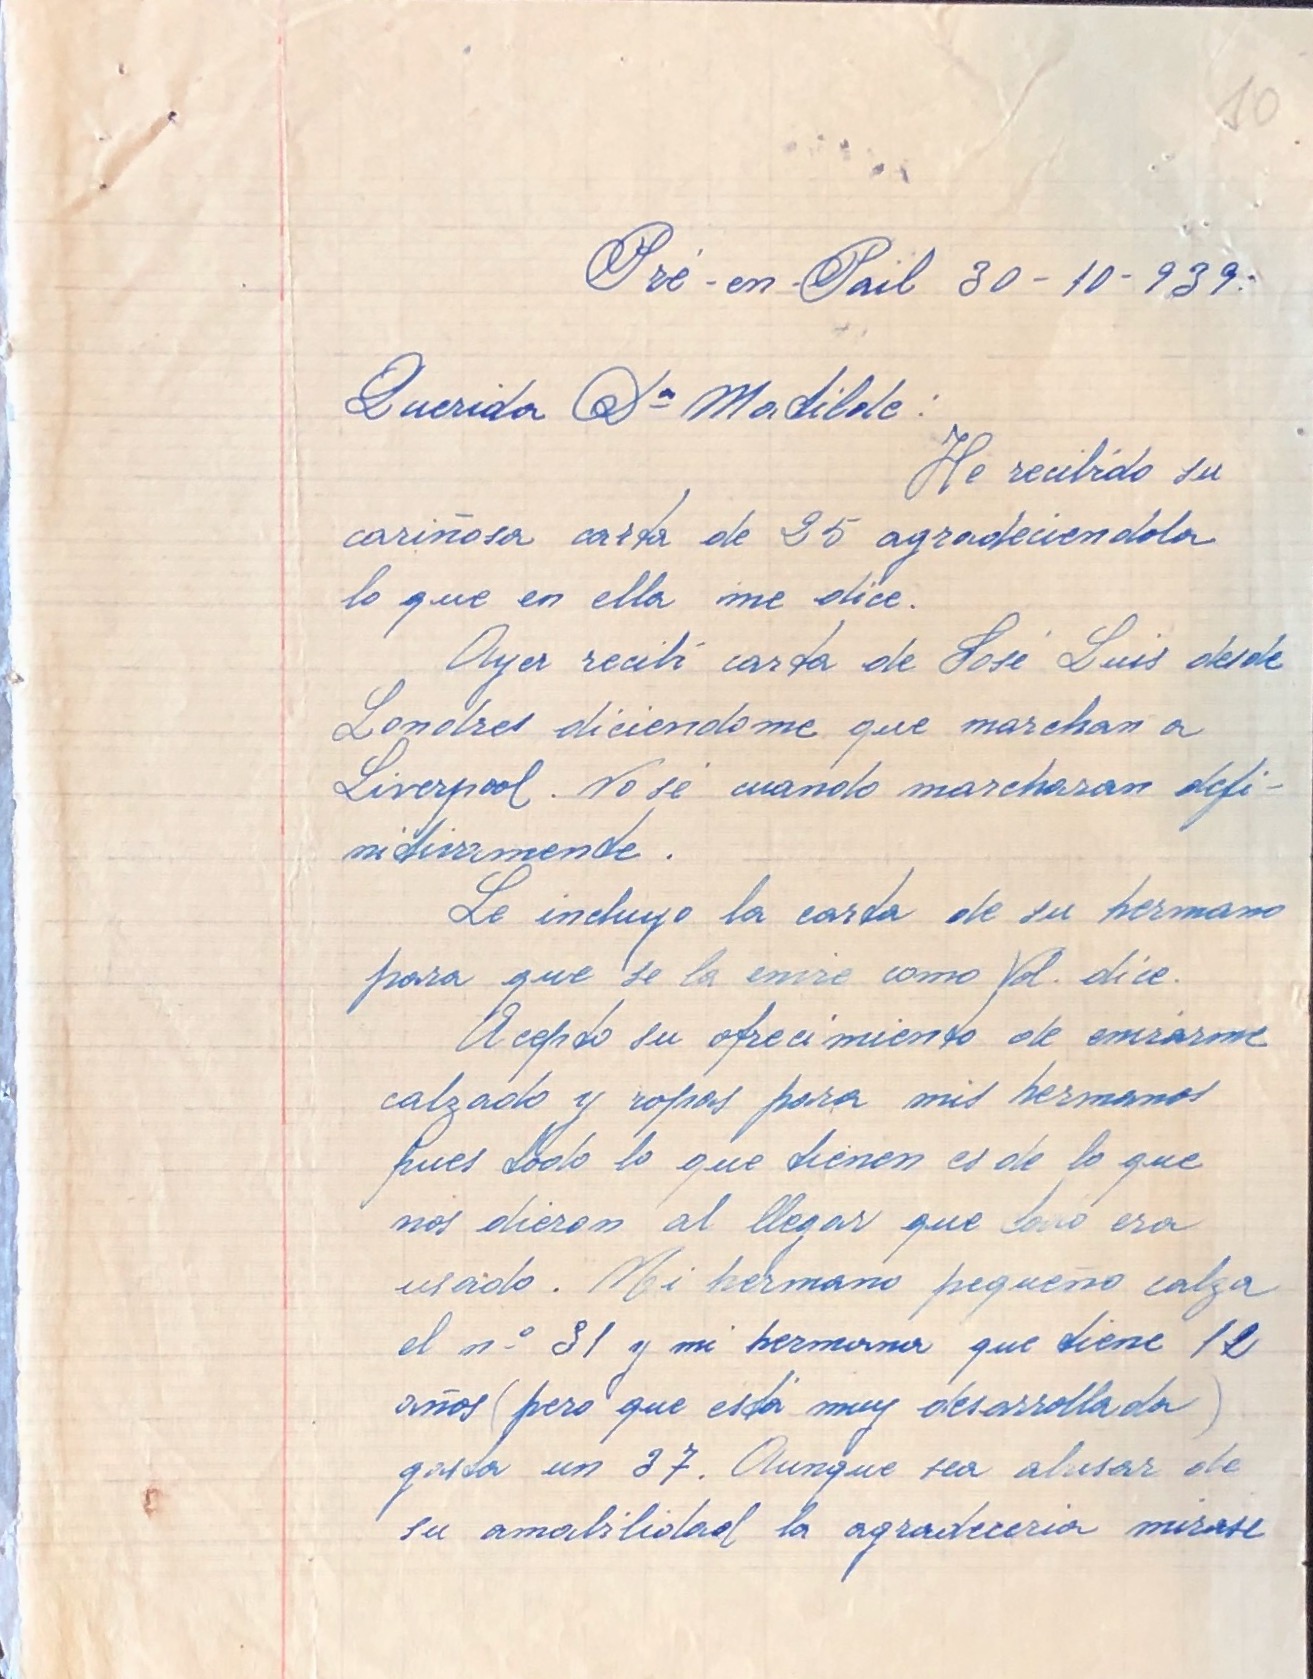 10
Pré-en-Pail 30-10-939.
Querida Dª Matilde:
He recibido su
cariñosa carta de 25 agradeciendola
lo que en ella me dice.
Ayer recibí carta de José Luis desde
Londres diciendome que marchan a
Liverpool. No sé cuando marcharan defi-
nitivamente.
Le incluyo la carta de su hermano
para que se la envie como Vd. dice.
Acepto su ofrecimiento de enviarme
calzado y ropas para mis hermanos
pues todo lo que tienen es de lo que
nos dieron al llegar que todo era
usado. Mi hermano pequeño calza
el n.º 31 y mi hermana que tiene 12
años (pero que está muy desarrollada)
gasta un 37. Aunque sea abusar de
su amabilidad la agradeceria mirase